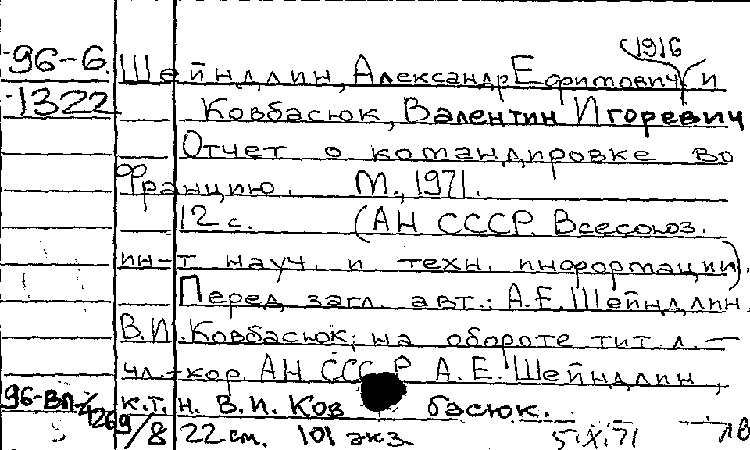 (1916
96-6 Шейндлин, Александр Ефимович и
1322 Ковбасюк, Валентин Игоревич
Отчет о командировке во
Францию. М., 1971.
12 с. (АН СССР Всесоюз.
ин-т науч. и техн. информации).
Перед загл. авт.: А.Е. Шейндлин,
В.И. Ковбасюк; на обороте тит. л. —
чл.-кор АН СССР А. Е. Шейндлин,
96-ВП- к.т.н. В.И. Ков басюк.
9/8 22 см. 101 экз. 5.X.71 ЛВ